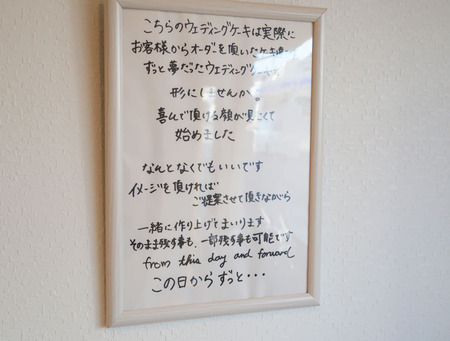 こちらのウェディングケーキは実際に
お客様からオーダーを頂いたケーキ
ずっと夢だったウェディング
形にしませんか。
喜んで頂ける顔が見たくて
始めました
なんとなくでもいいです
イメージを頂ければ
ご提案させて頂きながら
一緒に作り上げてまいります
そのまま残す事も、一部残す事も可能です
from this day and forward
この日からずっと・・・